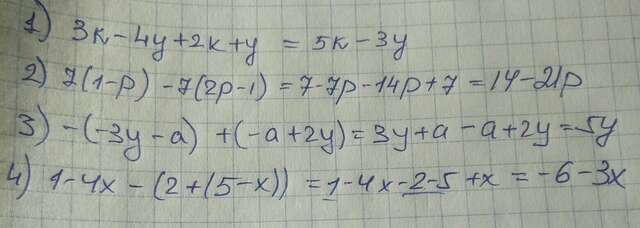 1) 3k-4y+2k+y = 5k-3y
2) 7(1-p) -7(2p-1)=7-7p-14p+7=14-21p
3) -(-3y-a) +(-a+2y)=3y+a-a+2y=5y
4) 1-4x-(2+(5-x)) =1-4x-2-5+x=-6-3x